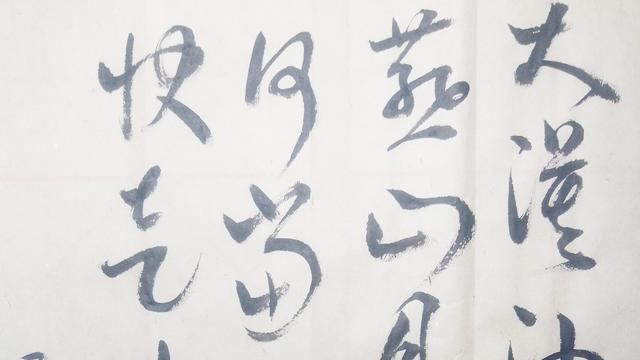 大漠沙
燕山月
何當
快走